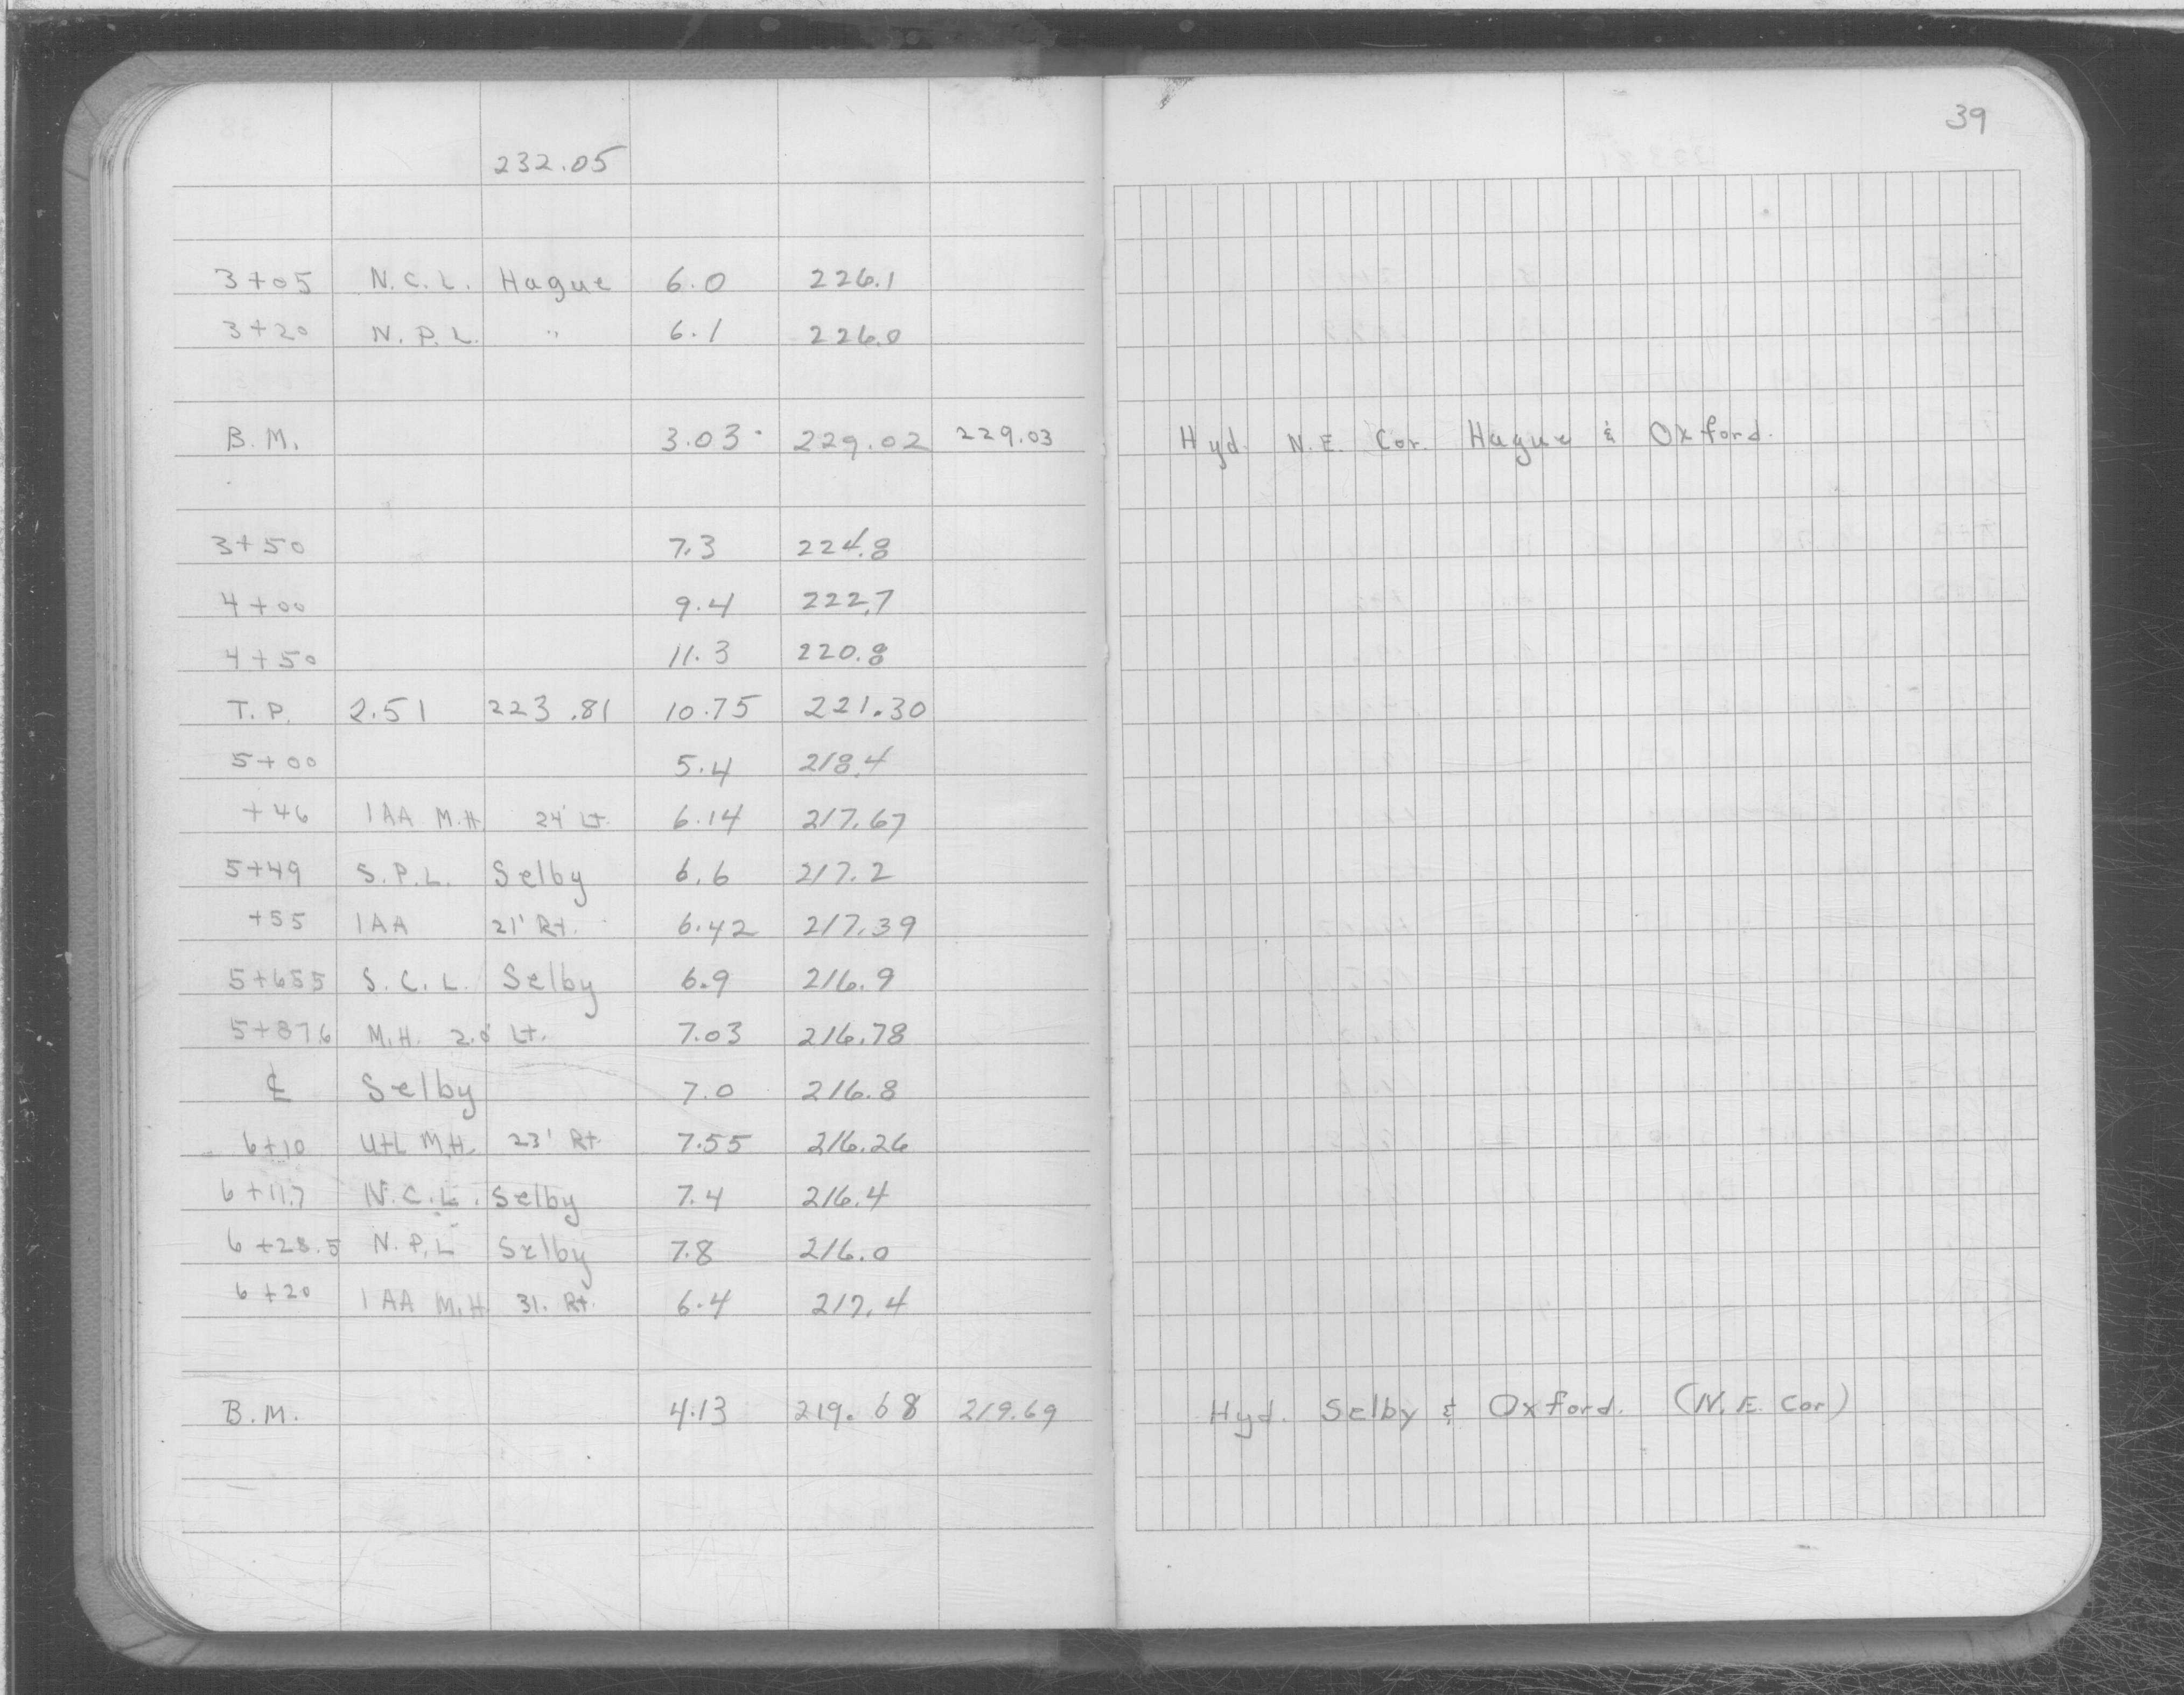 39
232.05
3+05 N.C.L. Hague 6.0 226.1
3+20 N.P.L. " 6.1 226.0
B.M. 3.03 229.02 229.03 Hyd. N.E. Cor. Hague & Oxford.
3+50 7.3 224.8
4+00 9.4 222.7
4+50 11.3 220.8
T.P. 2.51 223.81 10.75 221.30
5+00 5.4 218.4
+46 1AA M.H. 24' Lt. 6.14 217.67
5+49 S.P.L. Selby 6.6 217.2
+55 1AA 21' Rt. 6.42 217.39
5+655 S.C.L. Selby 6.9 216.9
5+876 M.H. 2.0' Lt. 7.03 216.78
℄ Selby 7.0 216.8
6+10 Utl M.H. 23' Rt. 7.55 216.26
6+11.7 N.C.L. Selby 7.4 216.4
6+28.5 N.P.L Selby 7.8 216.0
6+20 1AA M.H. 31. Rt. 6.4 217.4
B.M. 4.13 219.68 219.69 Hyd. Selby & Oxford. (N.E. Cor)